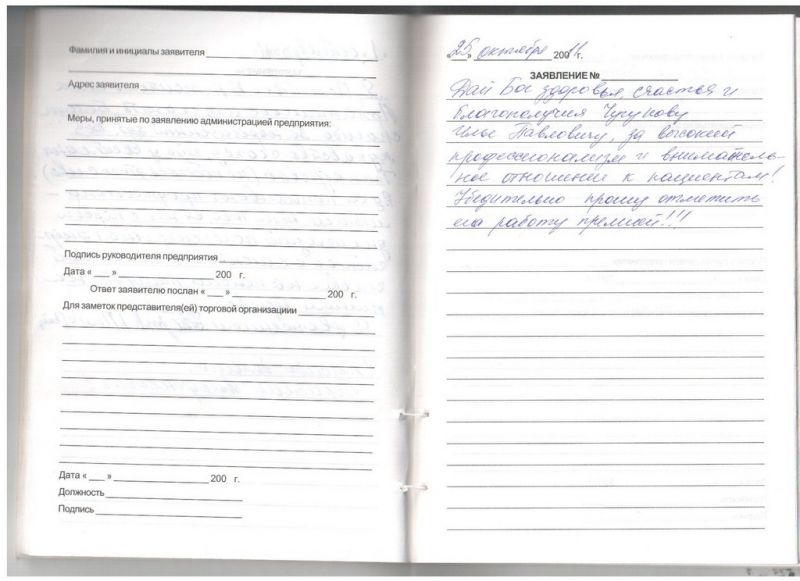 Фамилия и инициалы заявителя
Адрес заявителя
Меры, принятые по заявлению администрацией предприятия:
Подпись руководителя предприятия
Дата « ___ » ___ 200 г.
Ответ заявителю послан « ___ » ___ 200 г.
Для заметок представителя(ей) торговой организациии
Дата « ___ » ___ 200 г.
Должность
Подпись
« 25 » октября 200 11 г.
ЗАЯВЛЕНИЕ №
Дай Бог здоровья, счастья и
благополучия Чугунову
Илье Павловичу, за высокий
профессионализм и вниматель-
ное отношение к пациентам!
Убедительно прошу отметить
его работу премией!!!